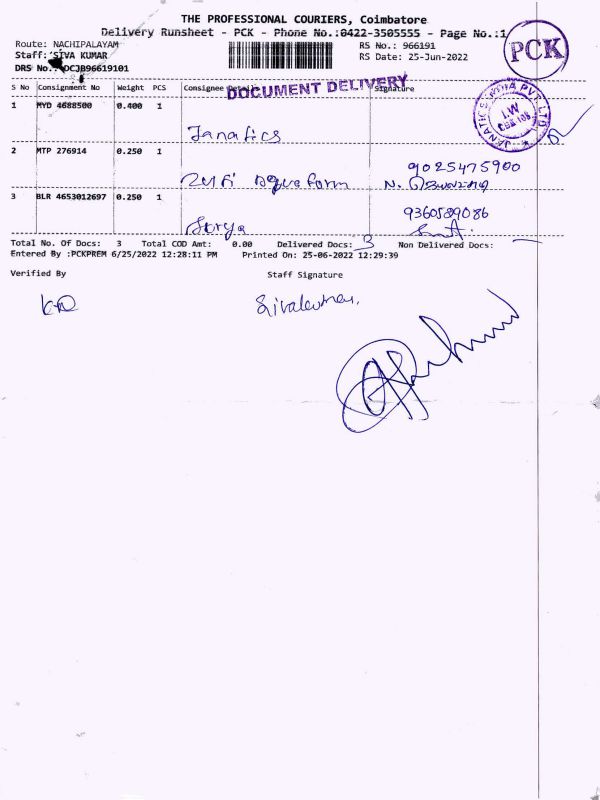 THE PROFESSIONAL COURIERS, Coimbatore
Delivery Runsheet - PCK - Phone No.:0422-3505555 - Page No.:1
Route: NACHIPALAYAM
RS No.: 966191
Staff: SIVA KUMAR
RS Date: 25-Jun-2022
DRS No.: DCJB96619101
PCK
S No Consignment No Weight PCS Consignee Details Signature
DOCUMENT DELIVERY
1 MYD 4688500 0.400 1
Janatics
JANATICS INDIA PVT LTD
2 MTP 276914 0.250 1
9025475900
aqua farm N.
3 BLR 4653012697 0.250 1
9360589086
Surya
Total No. Of Docs: 3 Total COD Amt: 0.00 Delivered Docs: 3 Non Delivered Docs: —
Entered By :PCKPREM 6/25/2022 12:28:11 PM Printed On: 25-06-2022 12:29:39
Verified By Staff Signature
Sivakumar.